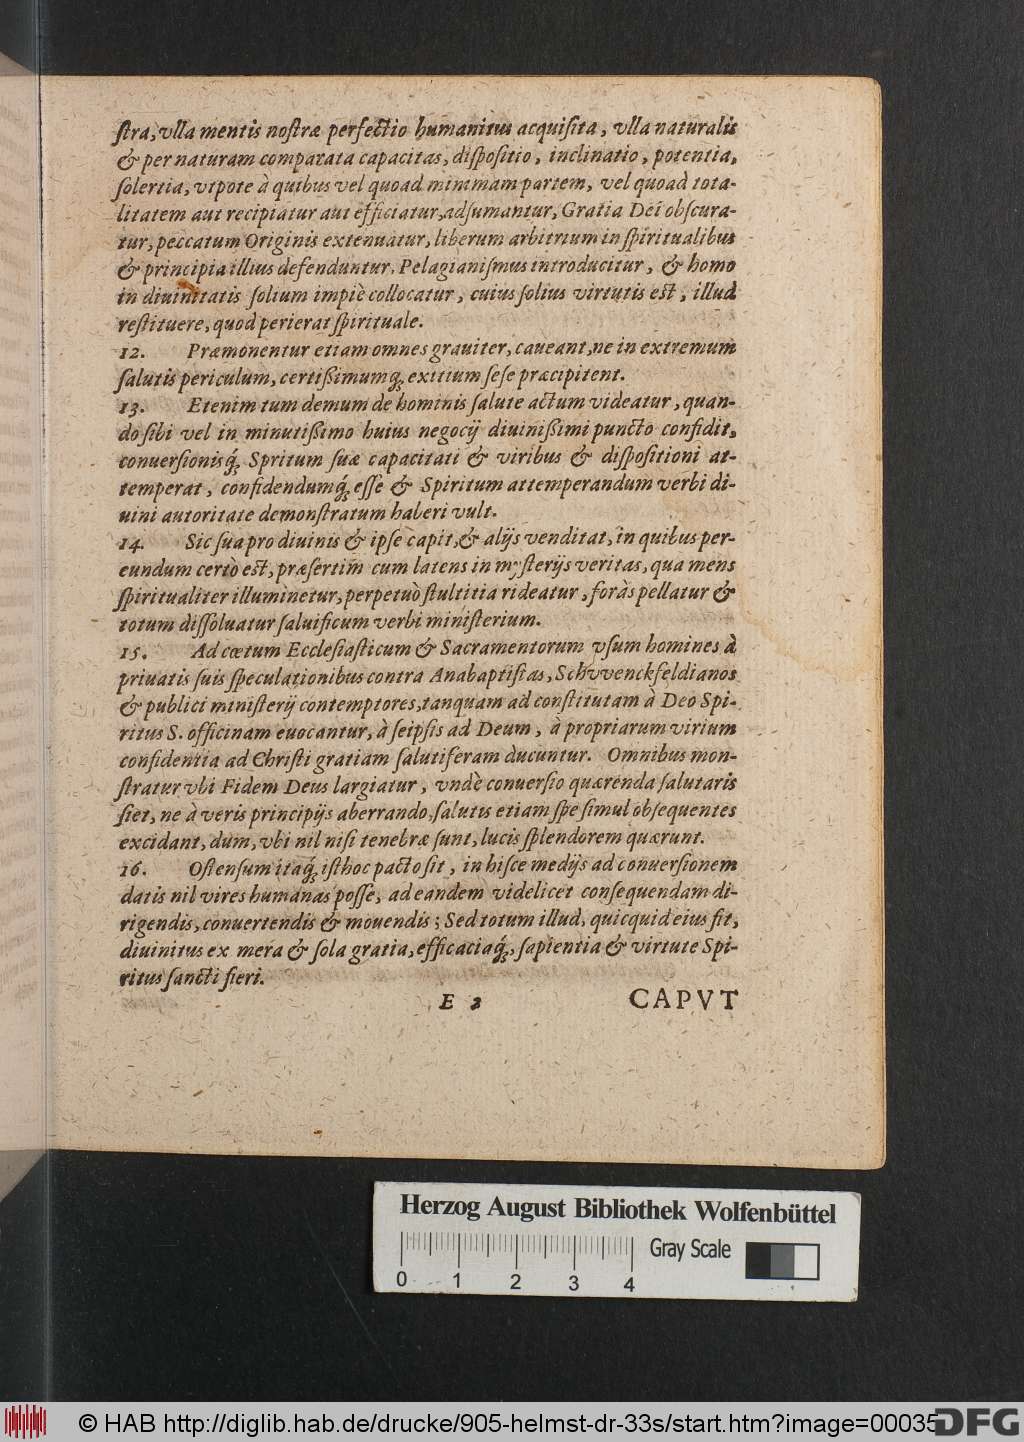 ſtra, vlla mentis noſtræ perfectio humanitus acquiſita, vlla naturalis
& per naturam comparata capacitas, diſpoſitio, inclinatio, potentia,
ſolertia, vtpote à quibus vel quoad minimam partem, vel quoad tota-
litatem aut recipiatur aut efficiatur, adſumantur, Gratia Dei obſcura-
tur, peccatum Originis extenuatur, liberum arbitrium in ſpiritualibus
& principia illius defenduntur, Pelagianiſmus introducitur, & homo
in diuinitatis ſolium impiè collocatur, cuius ſolius virtutis est, illud
reſtituere, quod perierat ſpirituale.
12. Præmonentur etiam omnes grauiter, caueant, ne in extremum
ſalutis periculum, certißimumq́; exitium ſeſe præcipitent.
13. Etenim tum demum de hominis ſalute actum videatur, quan-
do ſibi vel in minutißimo huius negocij diuinißimi puncto confidit,
conuerſionisq́; Spritum ſuæ capacitati & viribus & diſpoſitioni at-
temperat, confidendumq́; eſſe & Spiritum attemperandum verbi di-
uini autoritate demonſtratum haberi vult.
14. Sic ſua pro diuinis & ipſe capit, & alijs venditat, in quibus per-
eundum certò est, præſertim cum latens in myſterijs veritas, qua mens
ſpiritualiter illuminetur, perpetuò ſtultitia rideatur, foràs pellatur &
totum diſſoluatur ſaluificum verbi miniſterium.
15. Ad cœtum Eccleſiaſticum & Sacramentorum vſum homines à
priuatis ſuis ſpeculationibus contra Anabaptiſtas, Schvvenckfeldianos
& publici miniſterij contemptores, tanquam ad conſtitutam à Deo Spi-
ritus S. officinam euocantur, à ſeipſis ad Deum, à propriarum virium
confidentia ad Chriſti gratiam ſalutiferam ducuntur. Omnibus mon-
ſtratur vbi Fidem Deus largiatur, vndè conuerſio quærenda ſalutaris
ſiet, ne à veris principijs aberrando, ſalutis etiam ſpe ſimul obſequentes
excidant, dum, vbi nil niſi tenebræ ſunt, lucis ſplendorem quærunt.
16. Oſtenſum itaq́; iſthoc pacto ſit, in hiſce medijs ad conuerſionem
datis nil vires humanas poſſe, ad eandem videlicet conſequendam di-
rigendis, conuertendis & mouendis; Sed totum illud, quicquid eius fit,
diuinitus ex mera & ſola gratia, efficaciaq́;, ſapientia & virtute Spi-
ritus ſancti fieri.
E 3 CAPVT
Herzog August Bibliothek Wolfenbüttel
Gray Scale
0 1 2 3 4
© HAB http://diglib.hab.de/drucke/905-helmst-dr-33s/start.htm?image=00035
DFG